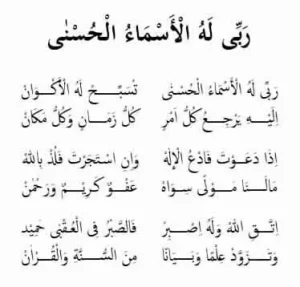 رَبِّى لَهُ الْأَسْمَاءُ الْحُسْنٰى
رَبِّى لَهُ الْأَسْمَاءُ الْحُسْنَى تُسَبِّحُ لَهُ الْأَكْوَانُ
اِلَيْهِ يَرْجِعُ كُلُّ اَمْرٍ كُلَّ زَمَانٍ وَكُلَّ مَكَانْ
اِذَا دَعَوْتَ فَادْعُ الْإِلٰهْ وَاِنِ اسْتَجَرْتَ فَلُذْ بِاللهْ
مَالَنَا مَوْلًى سِوَاهْ عَفُوٌّ كَرِيْمٌ وَرَحْمٰنْ
اِتَّقِ اللهَ وَلَهُ اِصْبِرْ فَالصَّبْرُ فِى الْعُقْبٰى حَمِيْد
وَتَزَوَّدْ عِلْمًا وَبَيَانًا مِنَ السُّنَّةِ وَالْقُرْاٰنْ